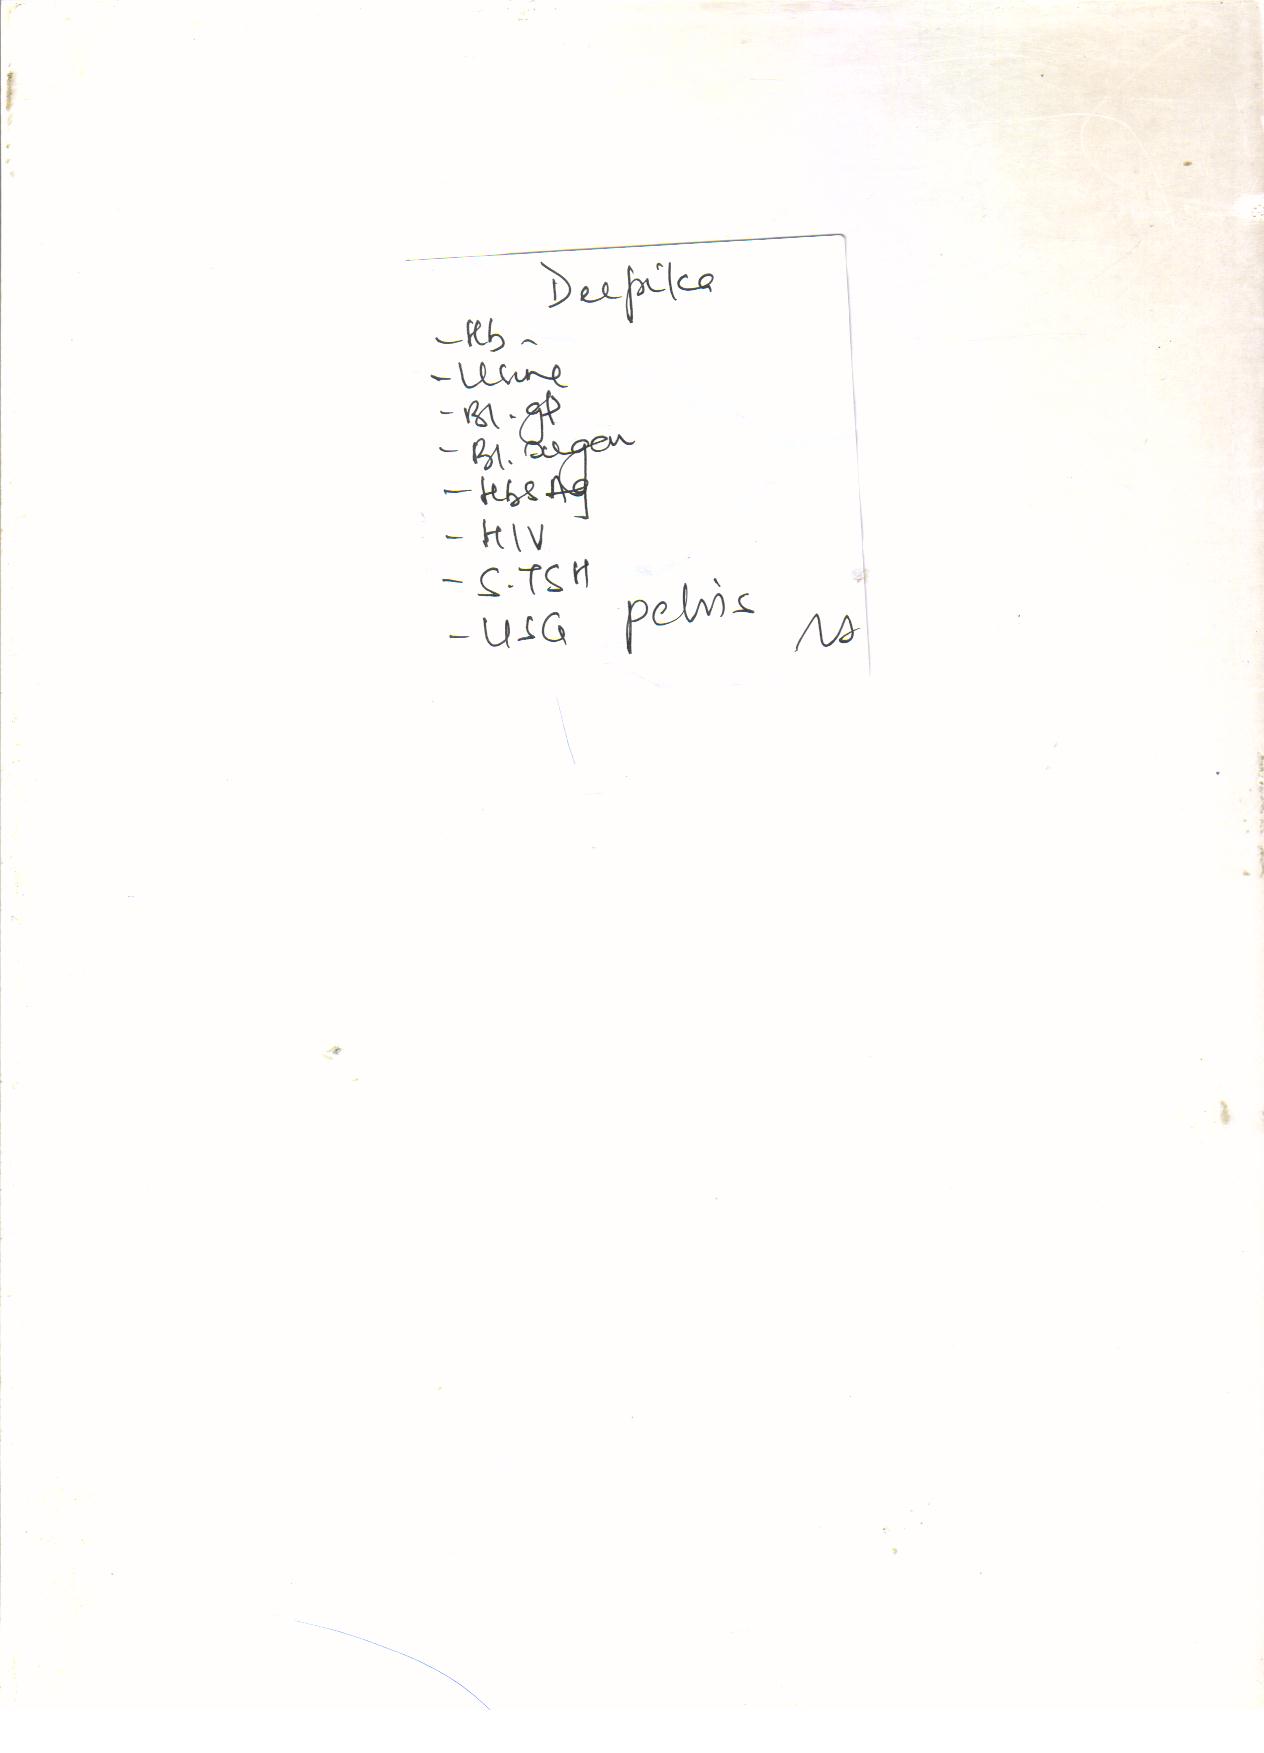 Deepika
- Hb ~
- Urine
- Bl. gp
- Bl. sugar
- HbsAg
- HIV
- S.TSH
- USG pelvis